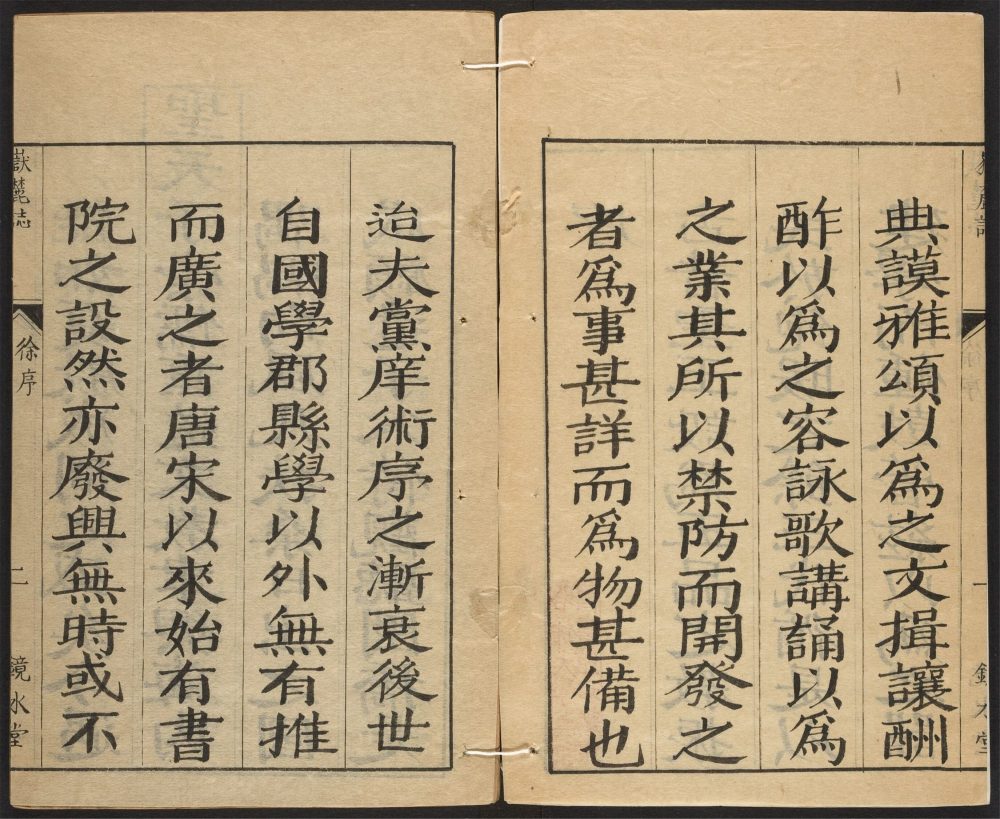 典謨雅頌以爲之文揖讓酬
酢以爲之容詠歌講誦以爲
之業其所以禁防而開發之
者爲事甚詳而爲物甚備也
迨夫黨庠術序之漸衰後世
自國學郡縣學以外無有推
而廣之者唐宋以來始有書
院之設然亦廢興無時或不
嶽麓志
徐序
二
鏡水堂